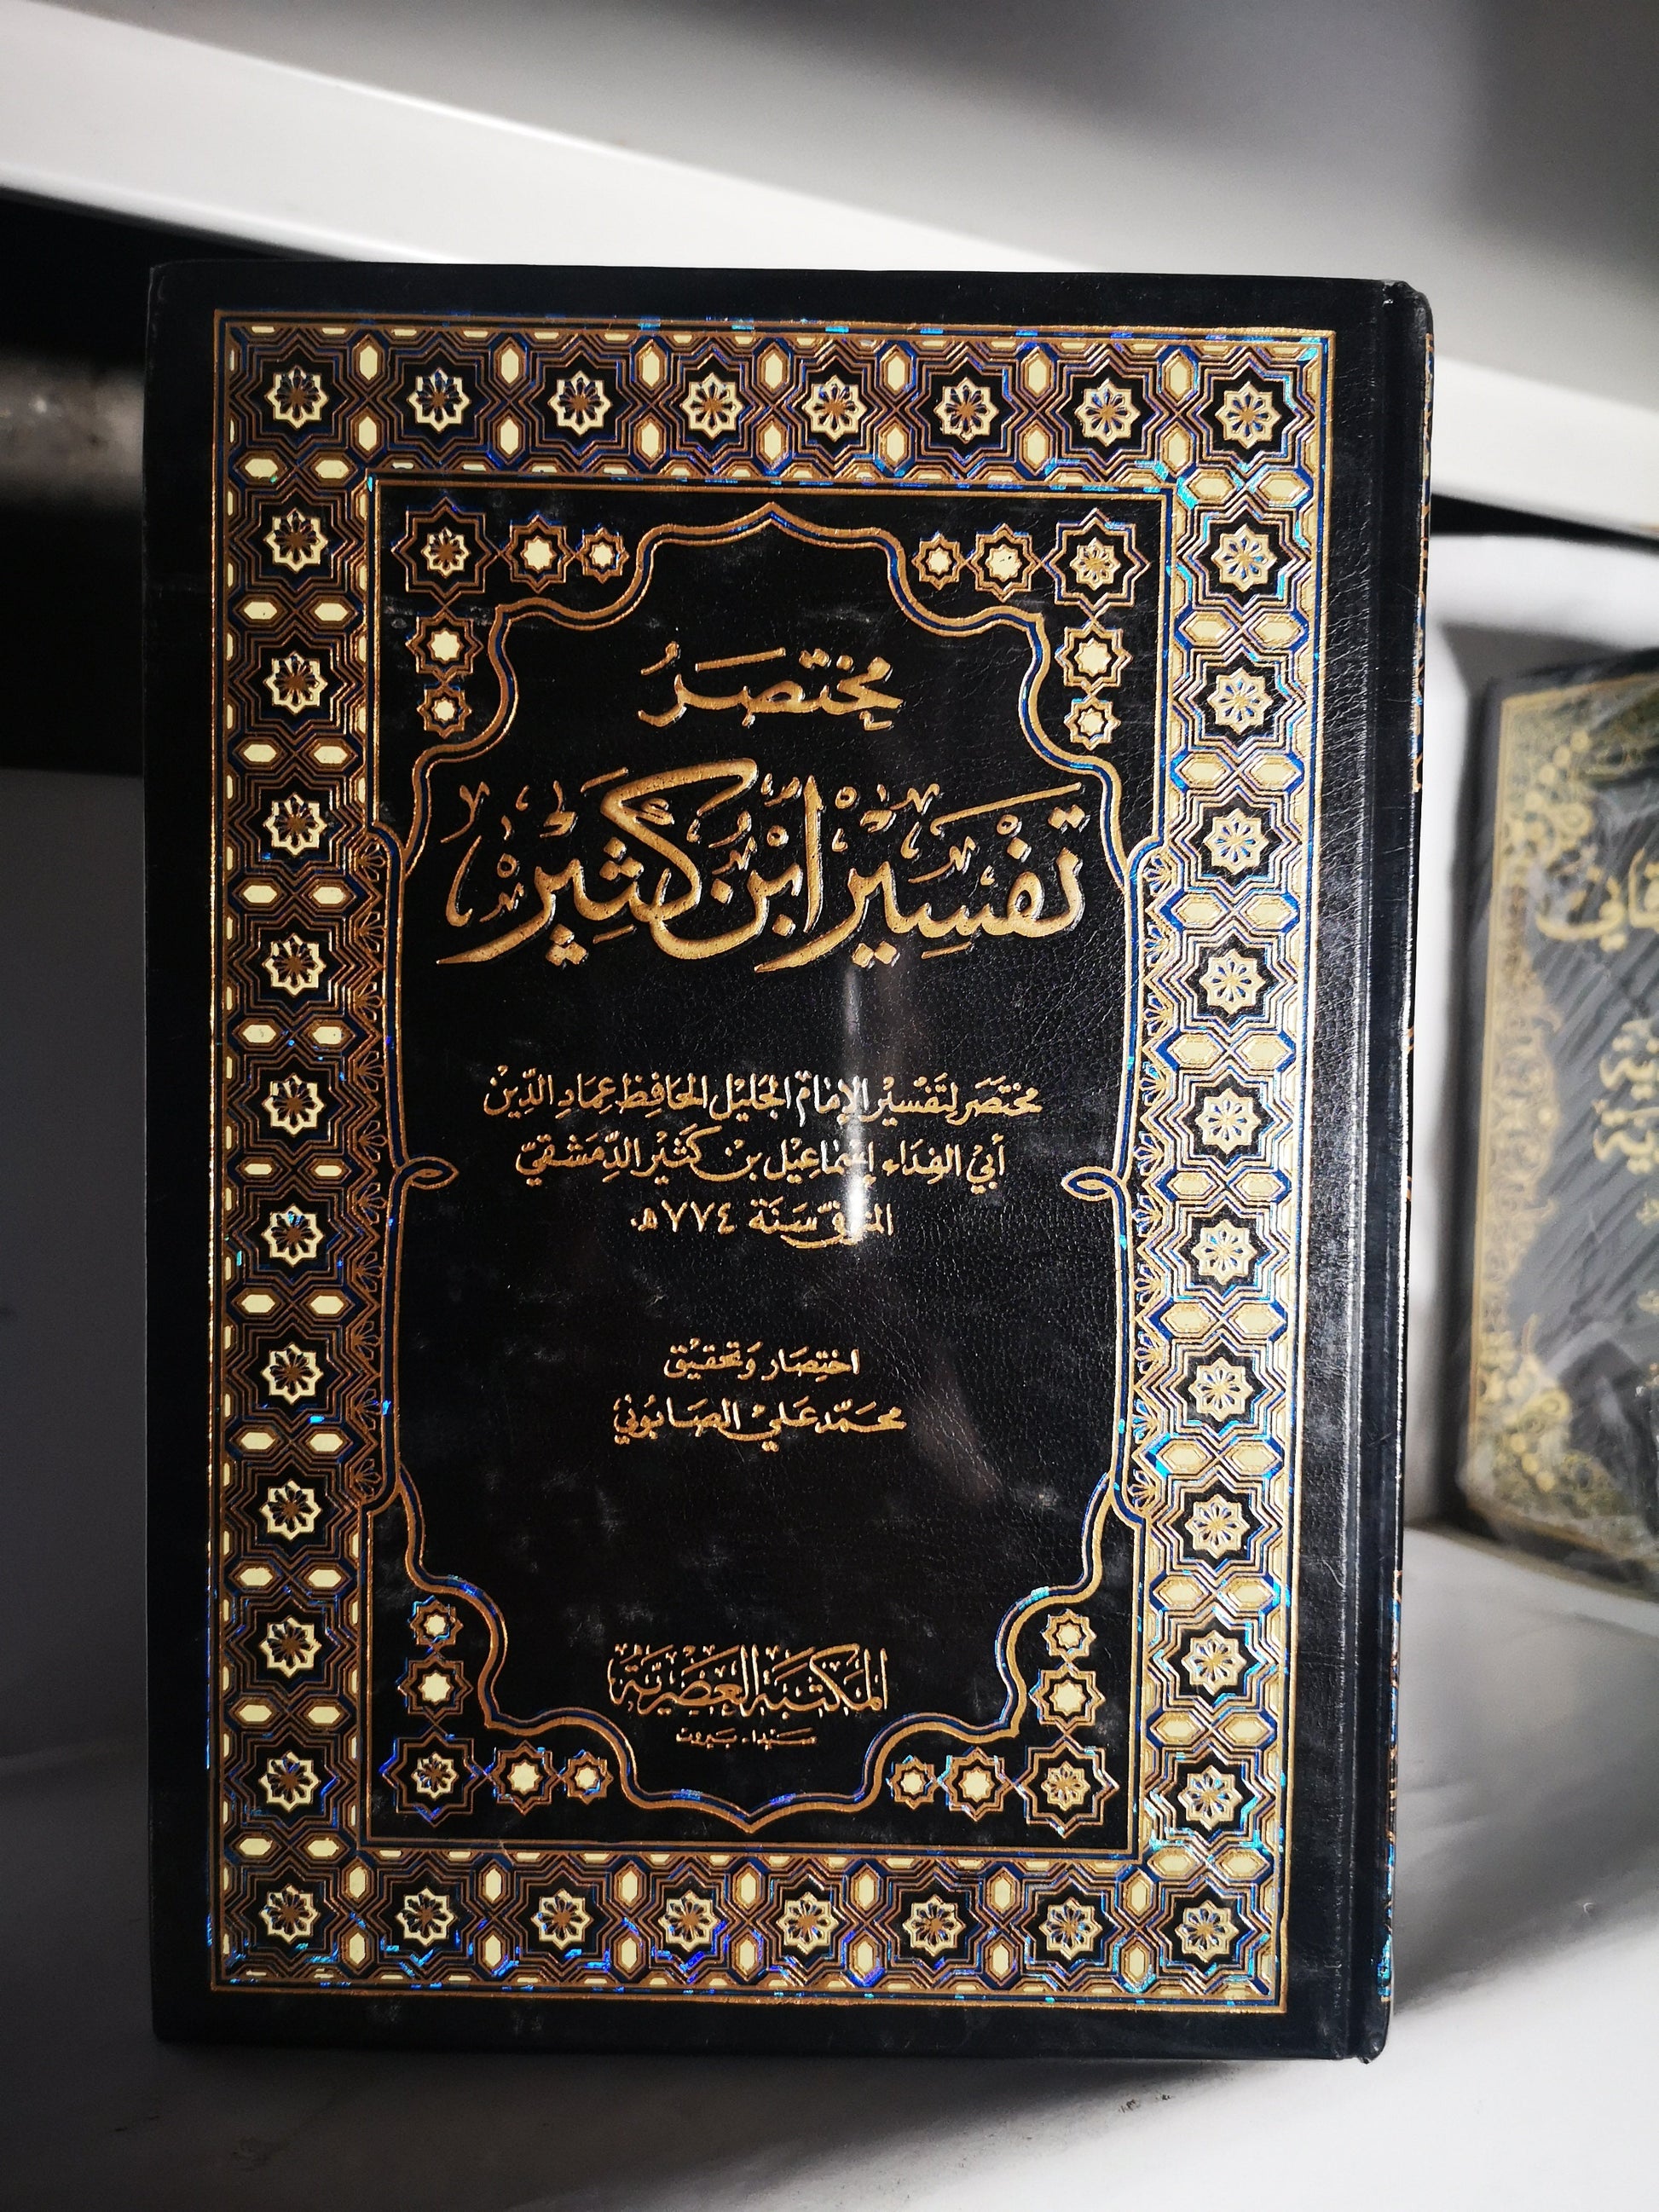 مختصرُ
تَفْسِيْر ابْن كَثِيْر
مختصَر لتَفْسِيْر الإِمَام الجَلِيْل الحَافِظ عِمَادِ الدِّيْن
أَبِيْ الفِدَاء إِسْمَاعِيْل بن كَثِيْر الدِّمَشقيّ
المتوفّى سَنَة ٧٧٤هـ.
اختِصَار وَتحقيْق
محمَّد عَلي الصَابُوني
المكتبَة العَصْريَّة
صَيْدا - بَيروت